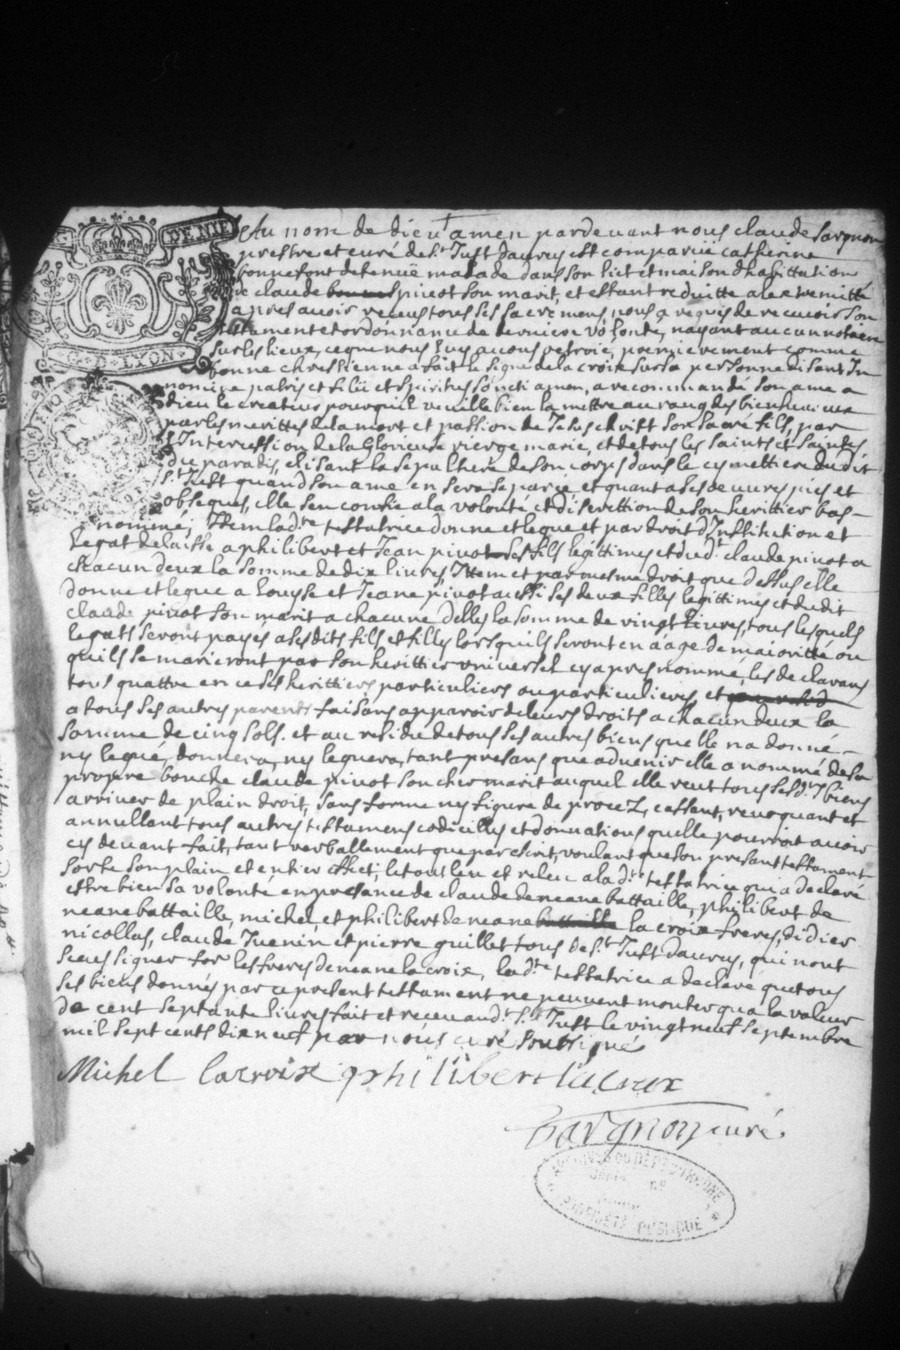 DENIE
G. LYON
Au nom de dieu amen pardevant nous claude Sargnon
prestre et curé de St Just davray est comparüe catherine
bonnefont detenüe malade dans son lict et maison dhabittation
de claude pivot son marit, et estant reduitte a lextremitté
apres avoir receu tous ses sacremens, nous a requis de recevoir son
testament et ordonnance de derniere volonté, nayant aucun notaire
sur les lieux, ce que nous luy avons octroié, premierement comme
bonne chrestienne a fait le signe de la croix sur sa personne disant In
nomine patris et filii et spiritus sancti amen, a recommandé son ame a
dieu le createur pour quil veuille bien la mettre au rang des bienheureux
par les merittes de la mort et passion de Jesus christ son sacré fils, par
l'Intercession de la Glorieuse vierge marie, et de tous les saints et saintes
du paradis, elisant la sepulture de son corps dans le cymettiere dudit
St Just quand son ame en sera separée et quant a ses oeuvres pies et
obseques, elle sen confie a la volonté et discrettion de son herittier bas-
nommé, Item lad.te testatrice donne et legue et par droit d'Institution et
legat delaisse a philibert et Jean pivot ses fils legittimes et dud. claude pivot a
chacun deux la somme de dix livres, Item et par mesme droit que dessus elle
donne et legue a Louyse et Jeane pivot aussi ses deux filles legittimes et dudit
claude pivot son marit a chacune delles la somme de vingt livres, tous lesquels
legats seront payes a ses dits fils et filles lorsquils seront en âage de maioritté ou
quils se marieront par son herittier universel cy apres nommé, les declarans
tous quattre en ce ses herittiers particuliers ou particulieres et
a tous ses autres parents faisans apparoir de leurs droits a chacun deux la
somme de cinq sols. et au residu de tous ses autres biens quelle na donné
ny legué, donnera, ny leguera, tant presans que advenir elle a nommé de sa
propre bouche claude pivot son cher marit auquel elle veut tous sesd.ts biens
arriver de plain droit, sans forme ny figure de procez, cassant, revoquant et
annullant tous autres testamens codicilles et donnations quelle pourroit avoir
cy devant fait, tant verballement que par escrit, voulant que son presant testament
sorte son plain et entier effect, le tout leu et releu a lad.te testatrice qui a declaré
estre bien sa volonté en presance de claude demeane battaille, philibert de
meane battaille, michel, et philibert demeane la croix freres, didier
nicollas, claude Juenin et pierre guillet tous de St Just davray, qui nont
sceu signer for les freres demeane la croix, lad.te testatrice a declaré que tous
ses biens donnés par ce presant testament ne peuvent monter qua la valeur
de cent septante livres fait et receu aud.t St Just le vingt neuf septembre
mil sept cents dix neuf par nous curé soussigné
Michel lacroix philibert lacroix
Sargnon curé.
ARCHIVES DU DÉPT DU RHONE
PROPRIÉTÉ PUBLIQUE